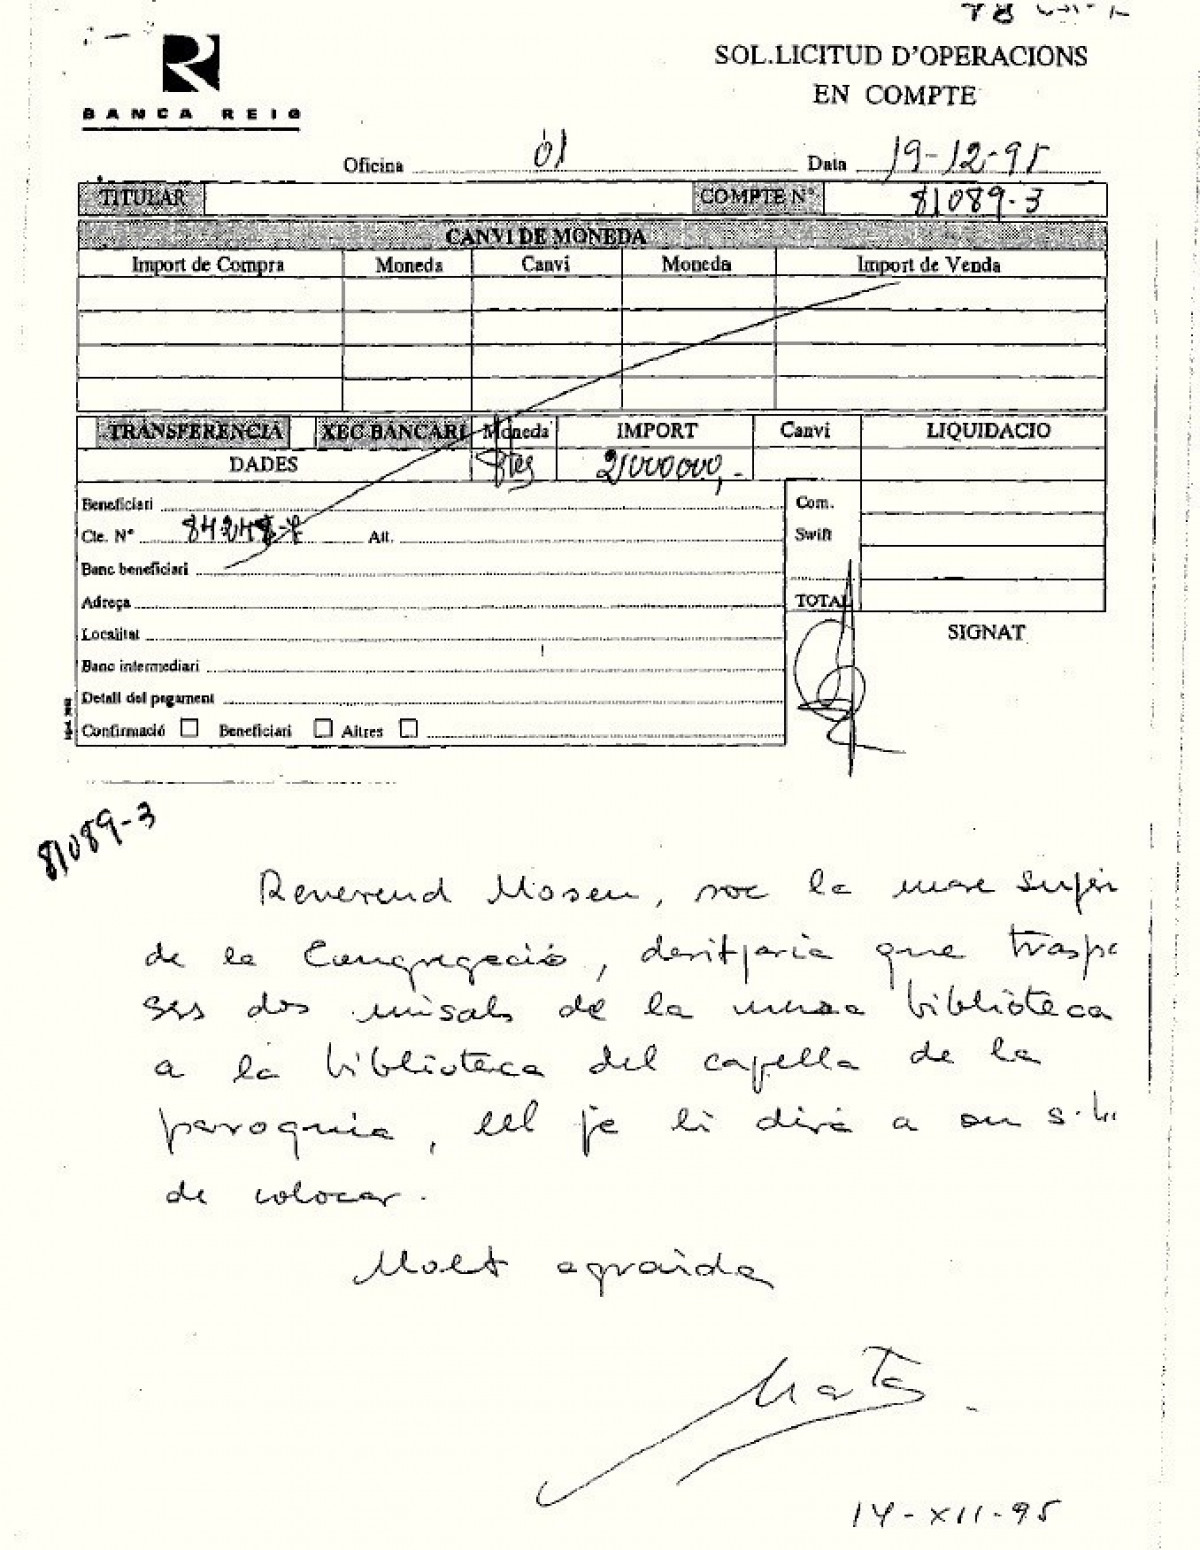 BANCA REIG
SOL.LICITUD D'OPERACIONS
EN COMPTE
Oficina 01 Data 19-12-95
TITULAR COMPTE Nº 81089-3
CANVI DE MONEDA
Import de Compra Moneda Canvi Moneda Import de Venda
TRANSFERENCIA XEC BANCARI Moneda IMPORT Canvi LIQUIDACIO
DADES Ptes 2000000,-
Beneficiari Com.
Cte. Nº Att. Swift
Banc beneficiari
Adreça TOTAL
Localitat SIGNAT
Banc intermediari
Detall del pagament
Confirmació Beneficiari Altres
81089-3
Reverend Mosen, soc la mare super
de la Congregació, desitjaria que traspa
ses dos misals de la meva biblioteca
a la biblioteca del capella de la
paroquia, ell ja li dirà a on s.h.
de colocar.
Molt agraida
Marta
14-XII-95